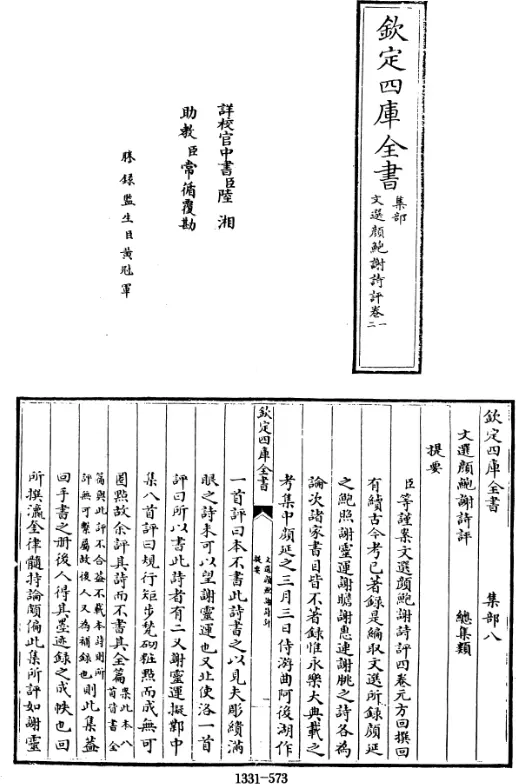 欽定四庫全書
集部
文選顏鮑謝詩評卷一
二
詳校官中書臣陸湘
助教臣常循覆勘
謄錄監生臣黃冠軍
欽定四庫全書 集部八
文選顏鮑謝詩評 總集類
提要
臣等謹案文選顏鮑謝詩評四卷元方回撰回
有續古今考已著錄是編取文選所錄顏延
之鮑照謝靈運謝瞻謝惠連謝朓之詩各為
論次諸家書目皆不著錄惟永樂大典載之
考集中顏延之三月三日侍游曲阿後湖作
欽定四庫全書
文選顏鮑謝詩評
提要
一首評曰本不書此詩書之以見夫彫繢滿
眼之詩未可以望謝靈運也又北使洛一首
評曰所以書此詩者有二又謝靈運擬鄴中
集八首評曰規行矩步甃砌粧點而成無可
圈點故余評其詩而不書其全篇案此本八首皆書全
篇與此評不合蓋不載本詩則所
評無可繫屬故後人又為補錄也則此集蓋
回手書之冊後人得其墨迹錄之成帙也回
所撰瀛奎律髓持論頗偏此集所評如謝靈
1331-573